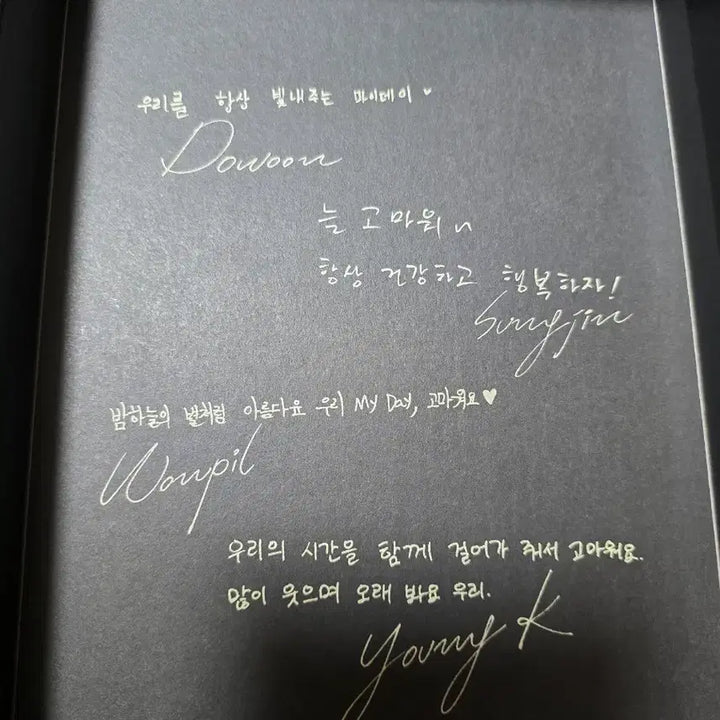 우리를 항상 빛내주는 마이데이 ♥
Dowoon
늘 고마워 ~
항상 건강하고 행복하자!
Sungjin
밤하늘의 별처럼 아름다운 우리 My Day, 고마워요♥
Wonpil
우리의 시간을 함께 걸어가 줘서 고마워요.
많이 웃으며 오래 봐요 우리.
Young K